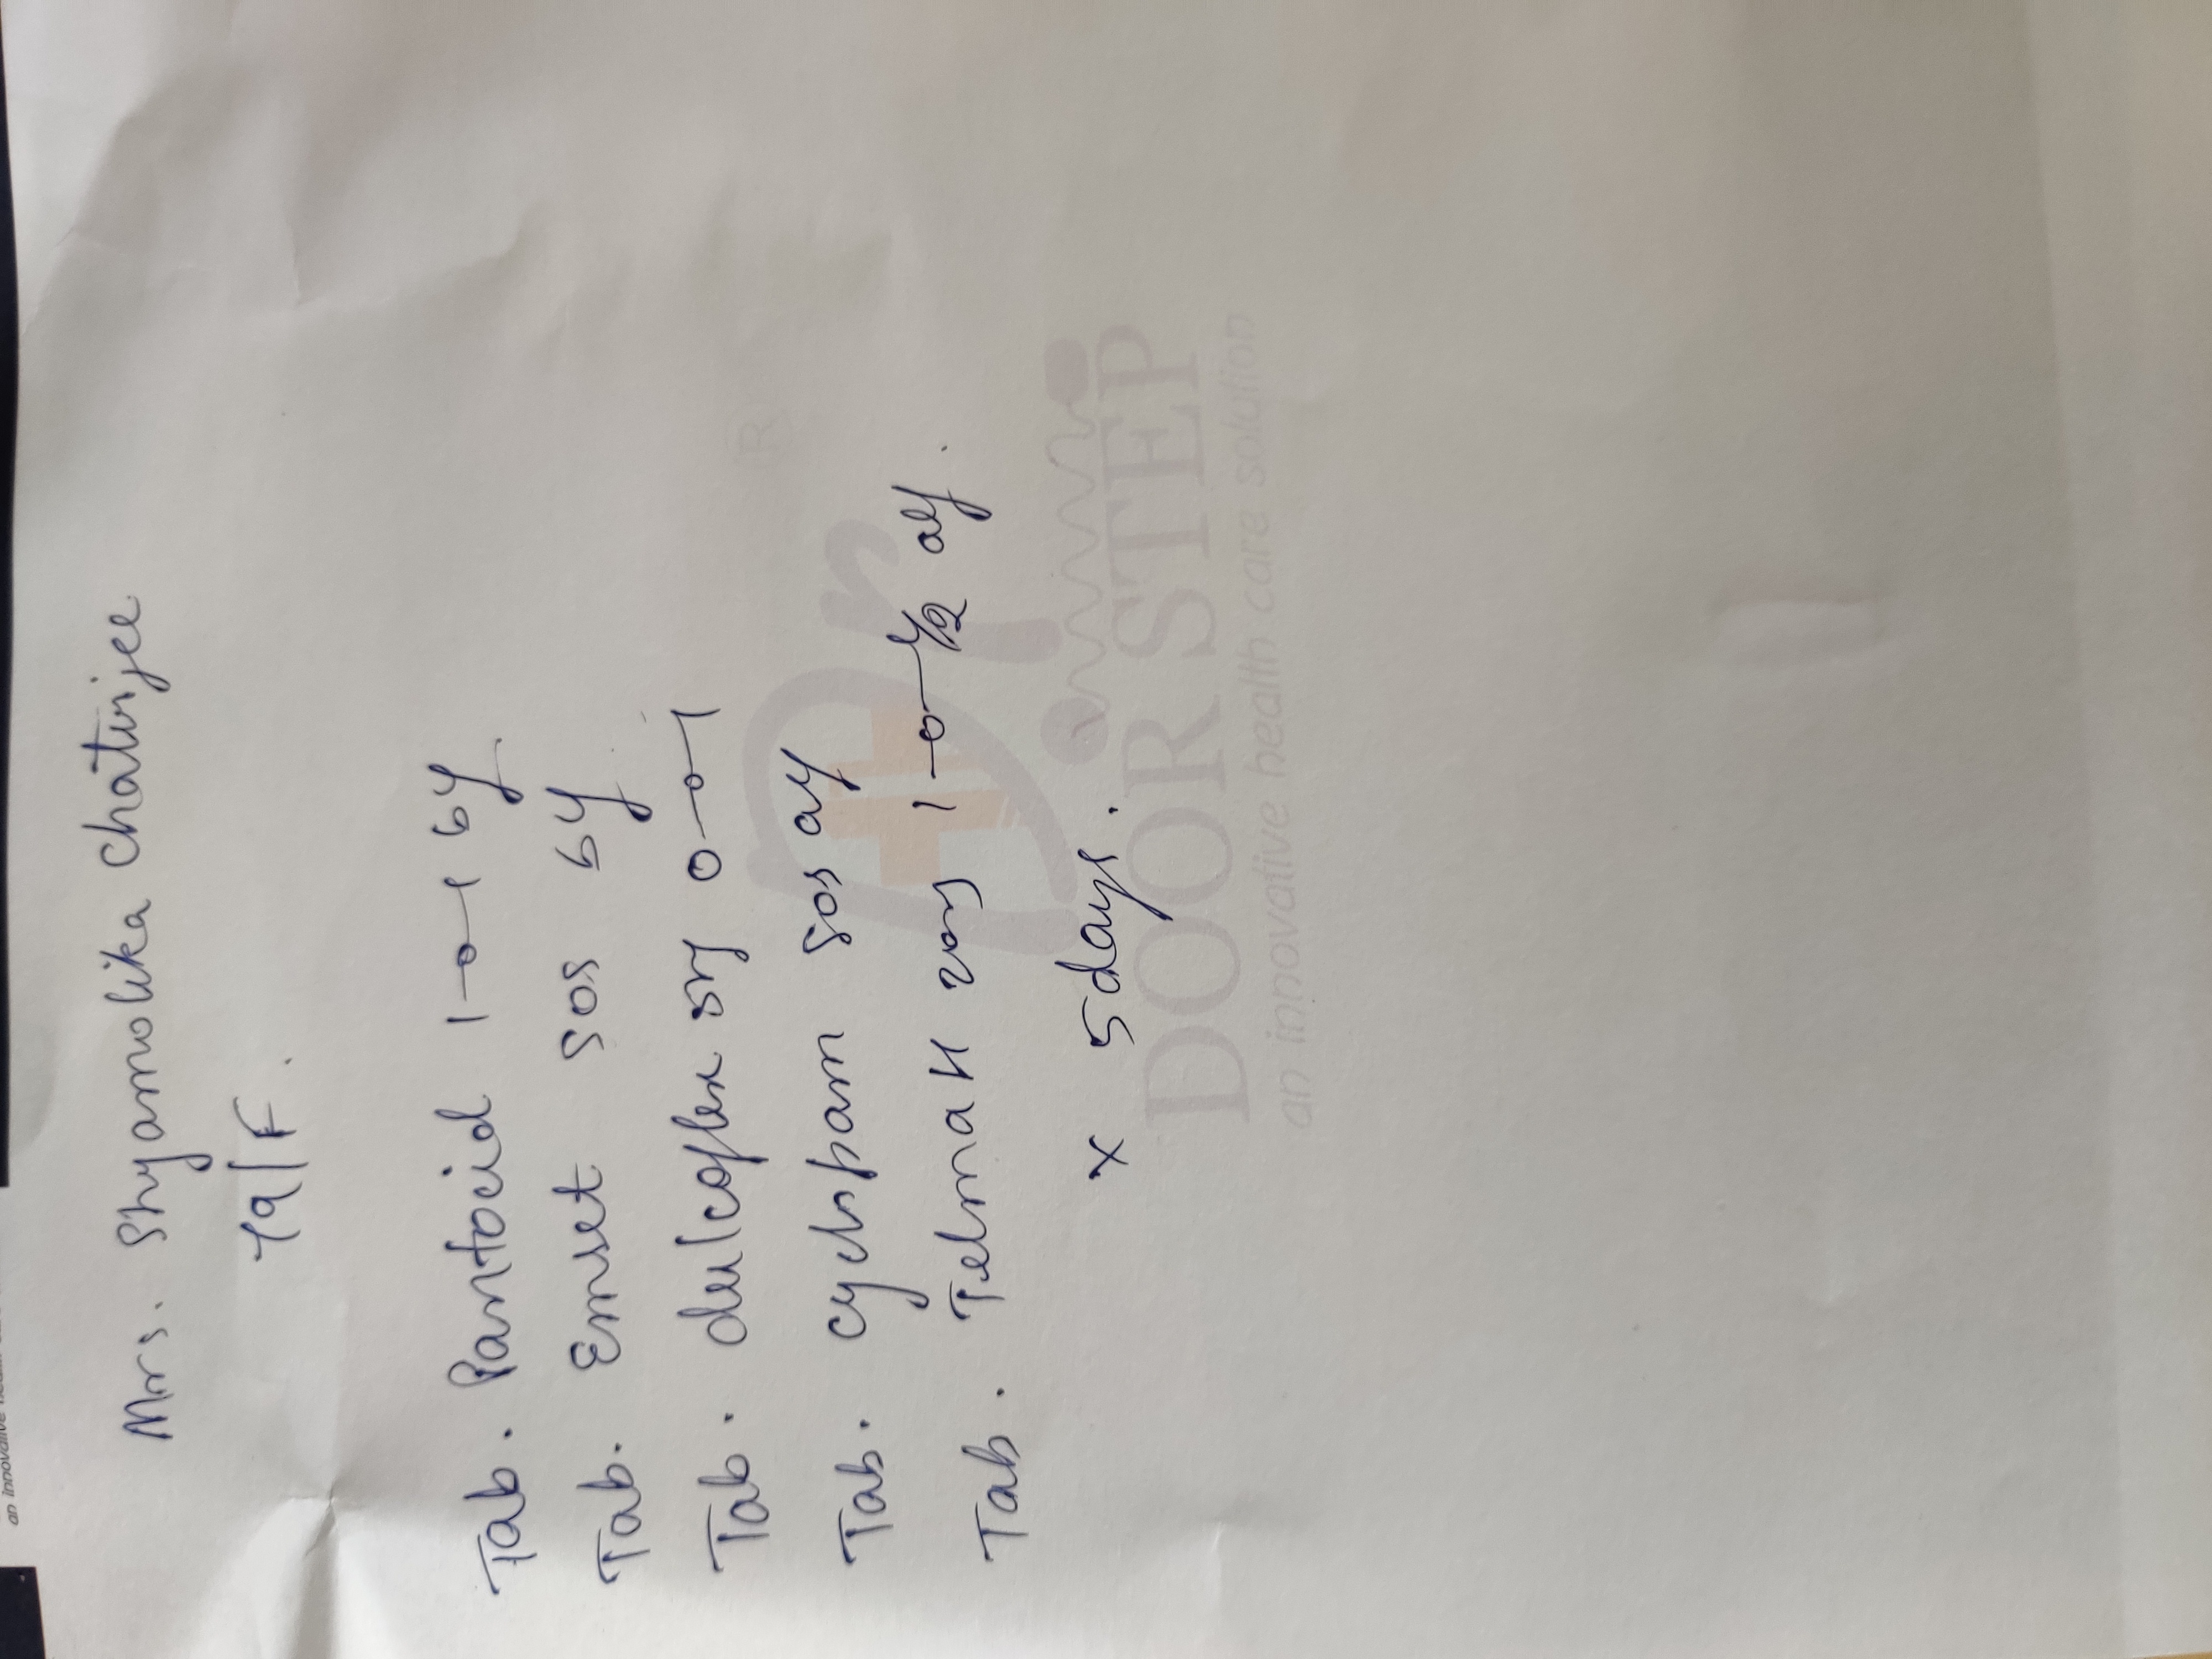 an innovative health care
Mrs. Shyamolika Chaterjee
79/F.
Tab. Pantocid 1-0-1 bf
Tab. Emset sos bf
Tab. dulcoflex 5mg 0-0-1
Tab. cyclopam sos af
Tab. Telma H 20mg 1-0-1/2 af.
x 5 days.
Dr.
DOOR STEP
an innovative health care solution